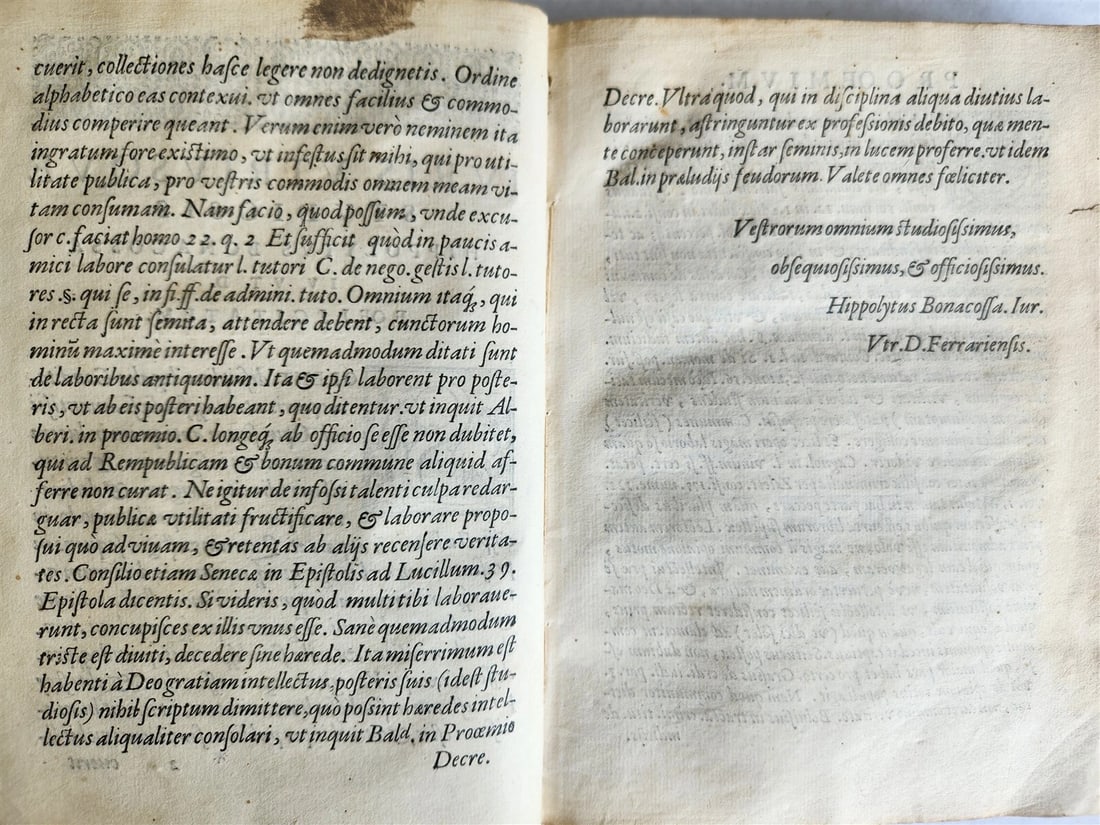 cuerit, collectiones hasce legere non dedignetis. Ordine
alphabetico eas contexui. vt omnes facilius & commo-
dius comperire queant. Verum enim verò neminem ita
ingratum fore existimo, vt infestus sit mihi, qui pro uti-
litate publica, pro vestris commodis omnem meam vi-
tam consumam. Nam facio, quod possum, vnde excu-
sor c. faciat homo 22. q. 2 Et sufficit quòd in paucis a-
mici labore consulatur l. tutori C. de nego. gestis l. tuto-
res .§. qui se, in fi. ff. de admini. tuto. Omnium itaq;, qui
in recta sunt semita, attendere debent, cunctorum ho-
minũ maximè interesse. Vt quemadmodum ditati sunt
de laboribus antiquorum. Ita & ipsi laborent pro poste-
ris, vt ab eis posteri habeant, quo ditentur. vt inquit Al-
beri. in proœmio. C. longeq; ab officio se esse non dubitet,
qui ad Rempublicam & bonum commune aliquid af-
ferre non curat. Ne igitur de infossi talenti culpa redar-
guar, publicæ vtilitati fructificare, & laborare propo-
sui quò aduiuam, & retentas ab alijs recensere verita-
tes. Consilio etiam Senecæ in Epistolis ad Lucillum. 39.
Epistola dicentis. Si videris, quòd multi tibi laboraue-
runt, concupisces ex illis vnus esse. Sanè quemadmodum
triste est diuiti, decedere sine hærede. Ita miserrimum est
habenti à Deo gratiam intellectus, posteris suis (idest stu-
diosis) nihil scriptum dimittere, quo possint hæredes intel-
lectus aliqualiter consolari, vt inquit Bald. in Proœmio
Decre.
PROOEMIVM.
Decre. Vltra quod, qui in disciplina aliqua diutius la-
borarunt, astringuntur ex professionis debito, quæ men-
te conceperunt, instar seminis, in lucem proferre. vt idem
Bal. in præludijs feudorum. Valete omnes fœliciter.
Vestrorum omnium studiosissimus,
obsequiosissimus, & officiosissimus.
Hippolytus Bonacossa. Iur.
Vtr. D. Ferrariensis.